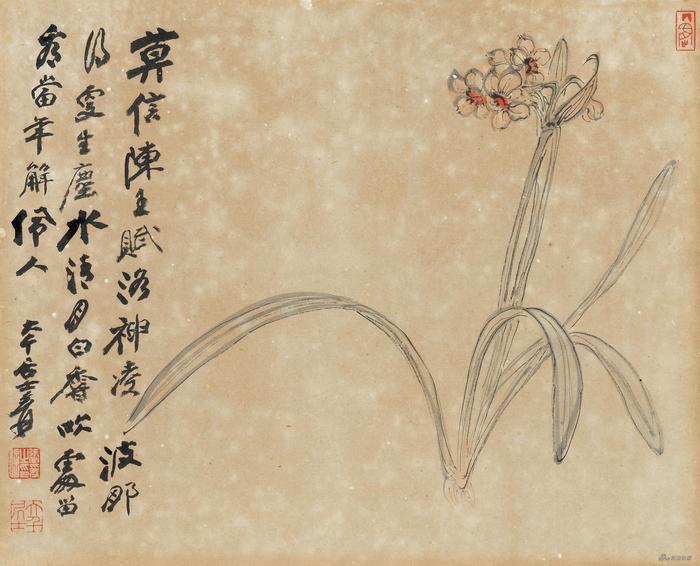 莫信陳王賦洛神凌波那
得更生塵水清月白香吹處留
看當年解佩人
大千居士爰